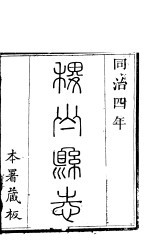 同治四年
稷山縣志
本署藏板